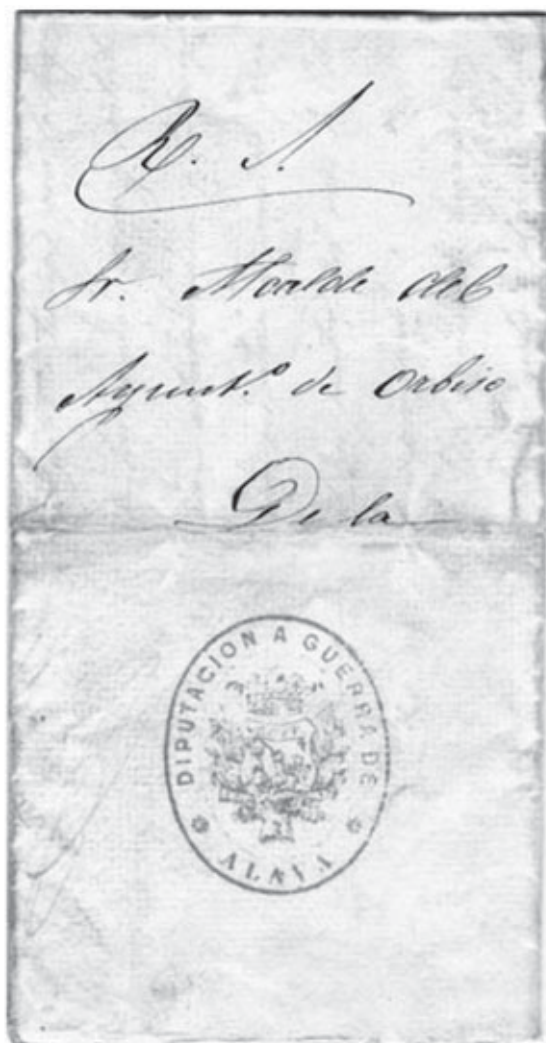 R. S.
Sr. Alcalde del
Ayunt.º de Orbiso
De la
DIPUTACION A GUERRA DE
ALAVA